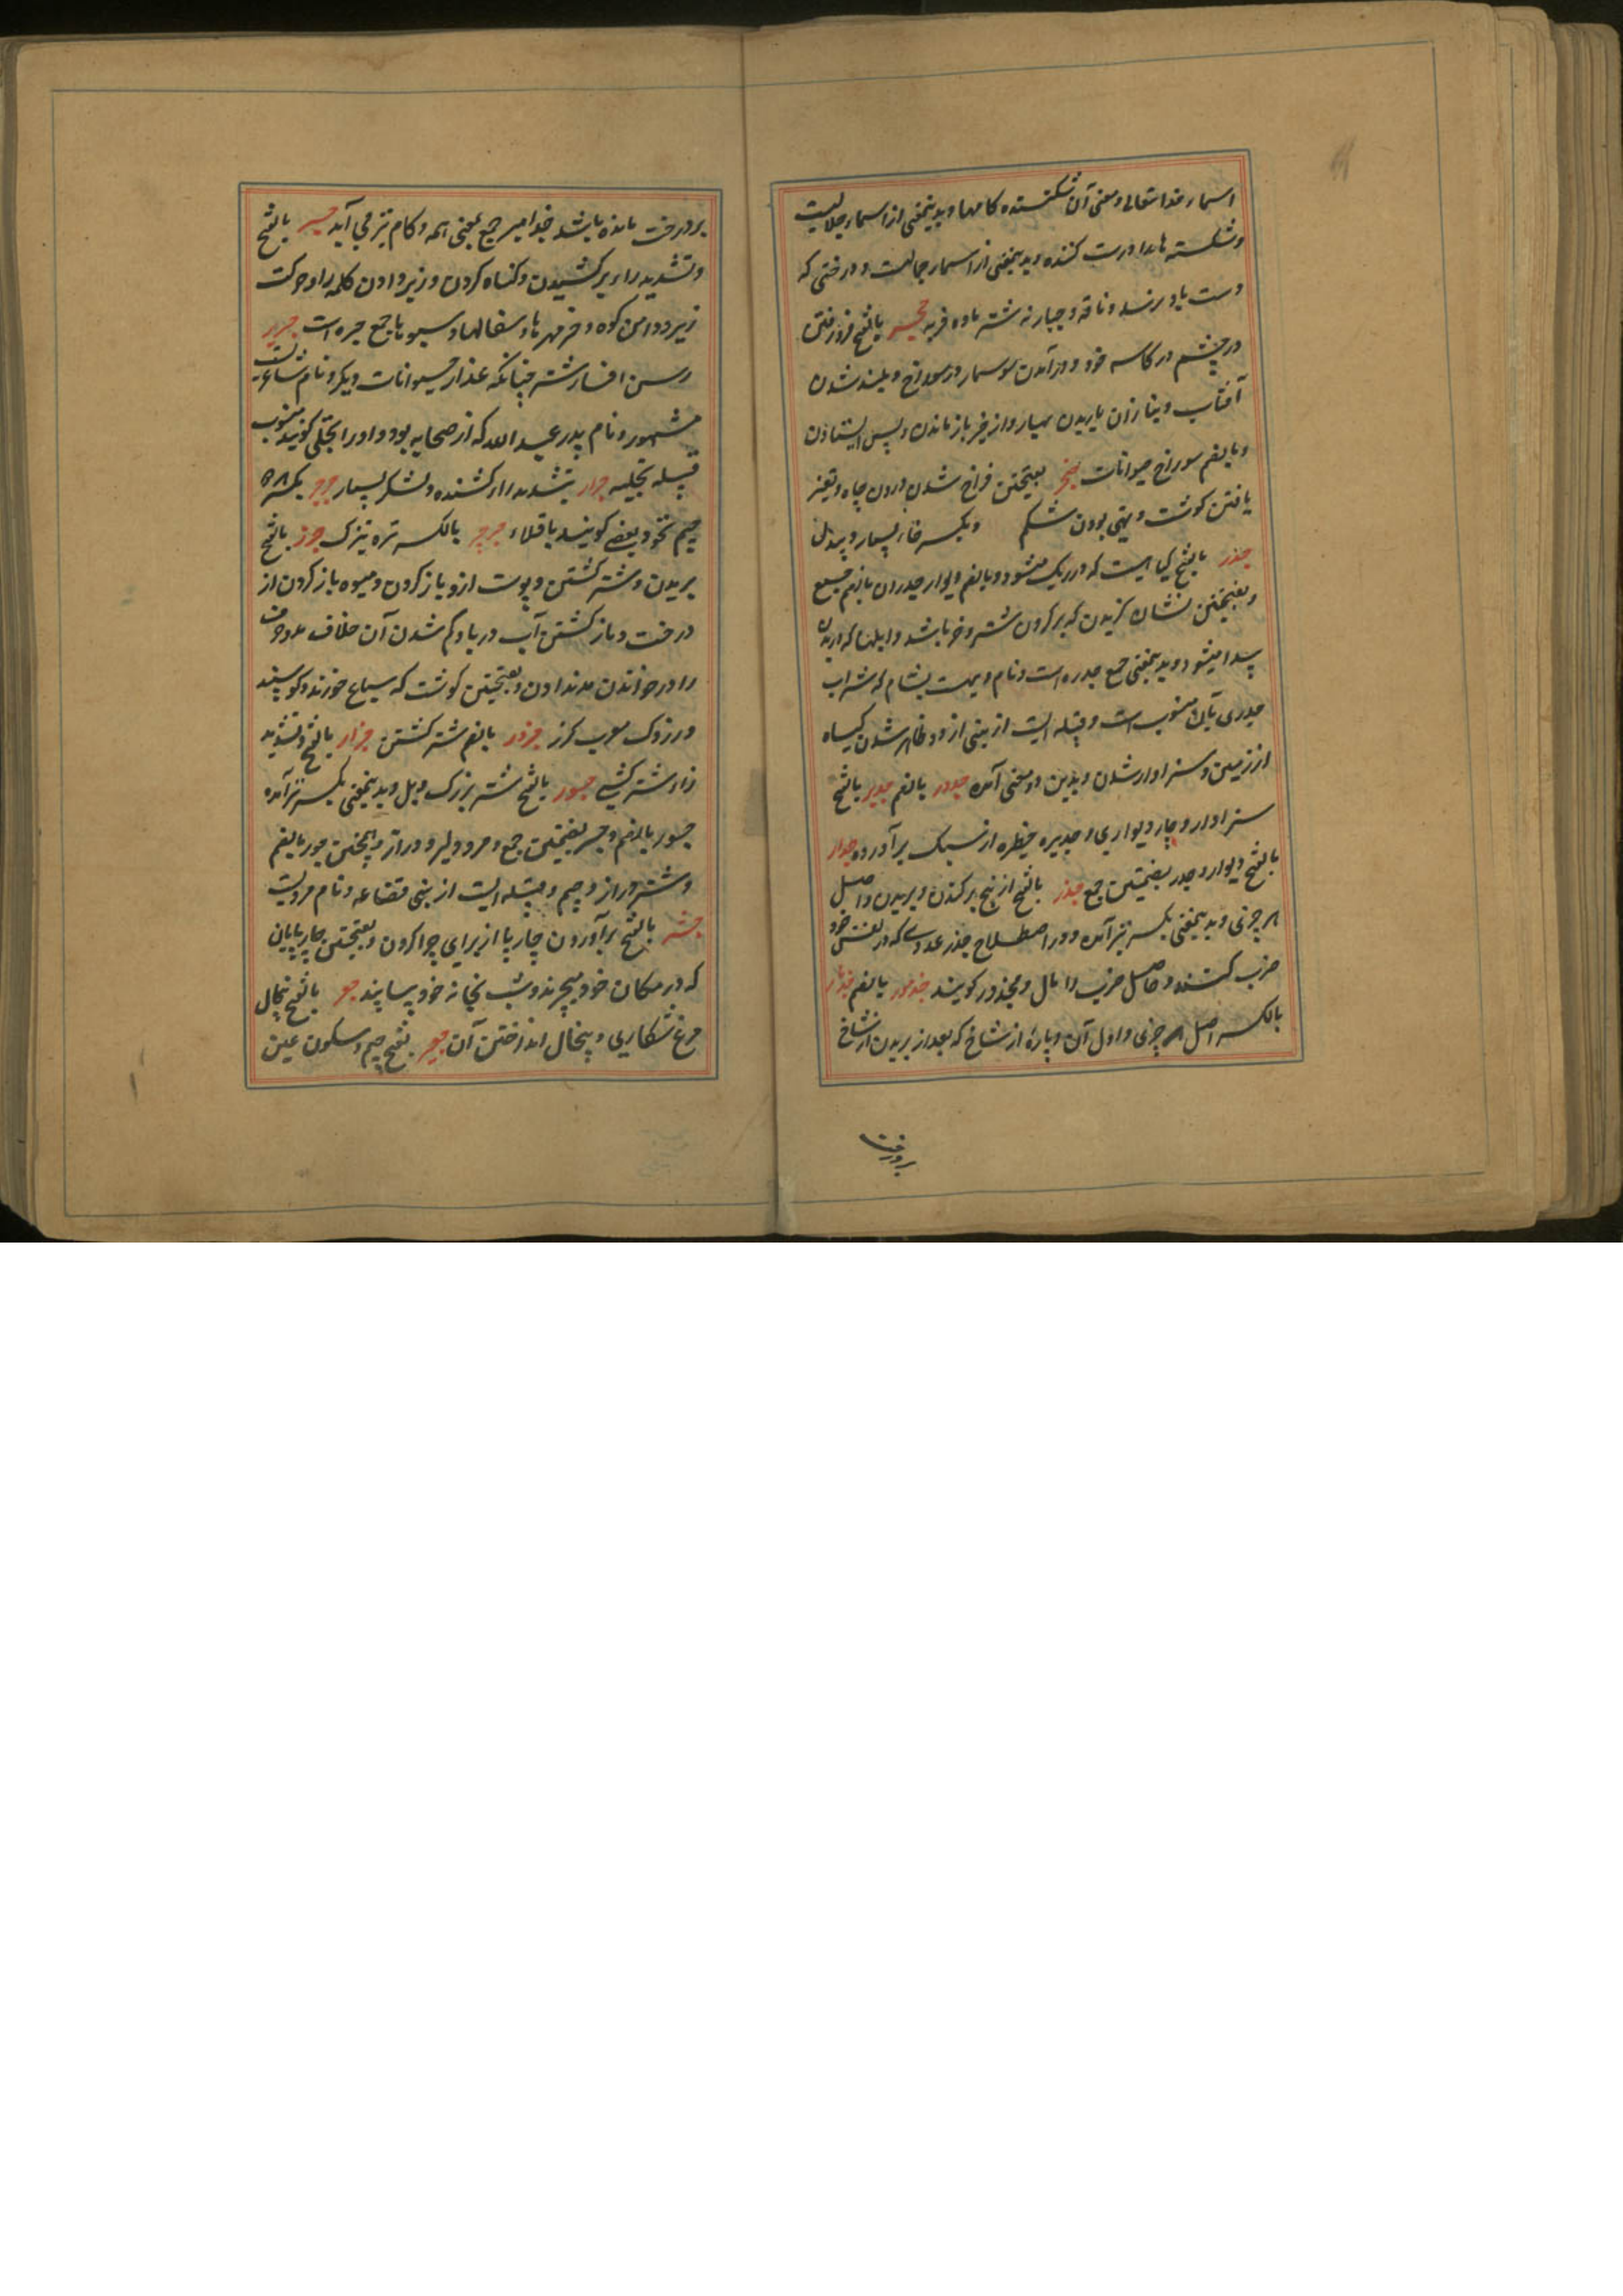 اسماء خدا تعالی و معنی آن شکسته کامها و بدینمعنی از اسماء جلالیست
و شکسته ها را درست کننده و بدینمعنی از اسماء جمالست و درختی که
دست باو نرسد و ناقه و جباره شتر ماده فربه جحر بالفتح فرو رفتن
در چشم در کاسه خود و در آمدن سوسمار در سوراخ و بلند شدن
آفتاب و باران باریدن بسیار و از خیر باز ماندن و پس ایستادن
و بالضم سوراخ حیوانات جخر بفتحتین فراخ شدن درون چاه و تغیر
یافتن گوشت و تهی بودن شکم و بکسر خاء بسیار و بیدل
جدر بالفتح گیاهیست که در ریگ میشود و بالضم دیوار جدران بالضم جمع
و بفتحتین نشان گزیدن که بر گردن شتر و خر باشد و ابلها که در بدن
پیدا میشود و بدینمعنی جمع جدره است و نام دهیست بشام که شراب
جدری بآن منسوب است و قبیله ایست از بنی ازد و ظاهر شدن گیاه
از زمین و سزاوار شدن و بدین دو معنی آمده جدور بالضم جدیر بالفتح
سزاوار و چار دیواری و جدیره حظیره از سنگ برآورده جدار
بالفتح دیوار و جدر بضمتین جمع جذر بالفتح از بیخ برکندن و بریدن و اصل
هر چیزی و بدینمعنی بکسر نیز آمده و در اصطلاح جذر عددی که در نفس خود
ضرب کنند و حاصل ضرب را مال و مجذور گویند جذمور بالضم جذمار
بالکسر اصل هر چیزی و اول آن و پاره از شاخ که بعد از بریدن از شاخ
بر درخت
بر درخت مانده باشد جذامیر جمع بمعنی همه و کام نیز می آید جر بالفتح
و تشدید راء بر کشیدن و گناه کردن و زیر دادن کلمه را و حرکت
زیر و دامن کوه و خرمهره ها و سفالها و سبوها جمع جره است جریر
رسن افسار شتر چنانکه عذار حیوانات دیگر و نام شاعریست
مشهور و نام پدر عبد الله که از صحابه بود و او را بجلی گویند منسوب
قبیله بجلیه جرار بتشدید راء کشنده و لشکر بسیار جرجر بکسر هر دو
جیم نخود و بعضی گویند باقلاء جرجیر بالکسر تره تیزک جزر بالفتح
بریدن و شتر کشتن و پوست ازو باز کردن و میوه باز کردن از
درخت و باز گشتن آب دریا و کم شدن آن خلاف مد و حرف
را در خواندن مد ندادن و بفتحتین گوشت که سباع خورند و گوسپند
و زردک معرب گزر جزور بالضم شتر کشتن جزار بالفتح و تشدید
زاء شتر کش جسور بالفتح شتر بزرگ و پل و بدینمعنی بکسر نیز آمده
جسور بالضم و جسر بضمتین جمع و مرد دلیر و دراز و همچنین جسور بالضم
و شتر دراز و جسیم و قبیله ایست از بنی قضاعه و نام مردیست
جشر بالفتح برآوردن چار پا از برای چرا کردن و بفتحتین چار پایان
که در مکان خود بچرند و شب بخانه خود بیایند جعر بالفتح پنجال
مرغ شکاری و پنجال انداختن آن جعر بفتح جیم و سکون عین